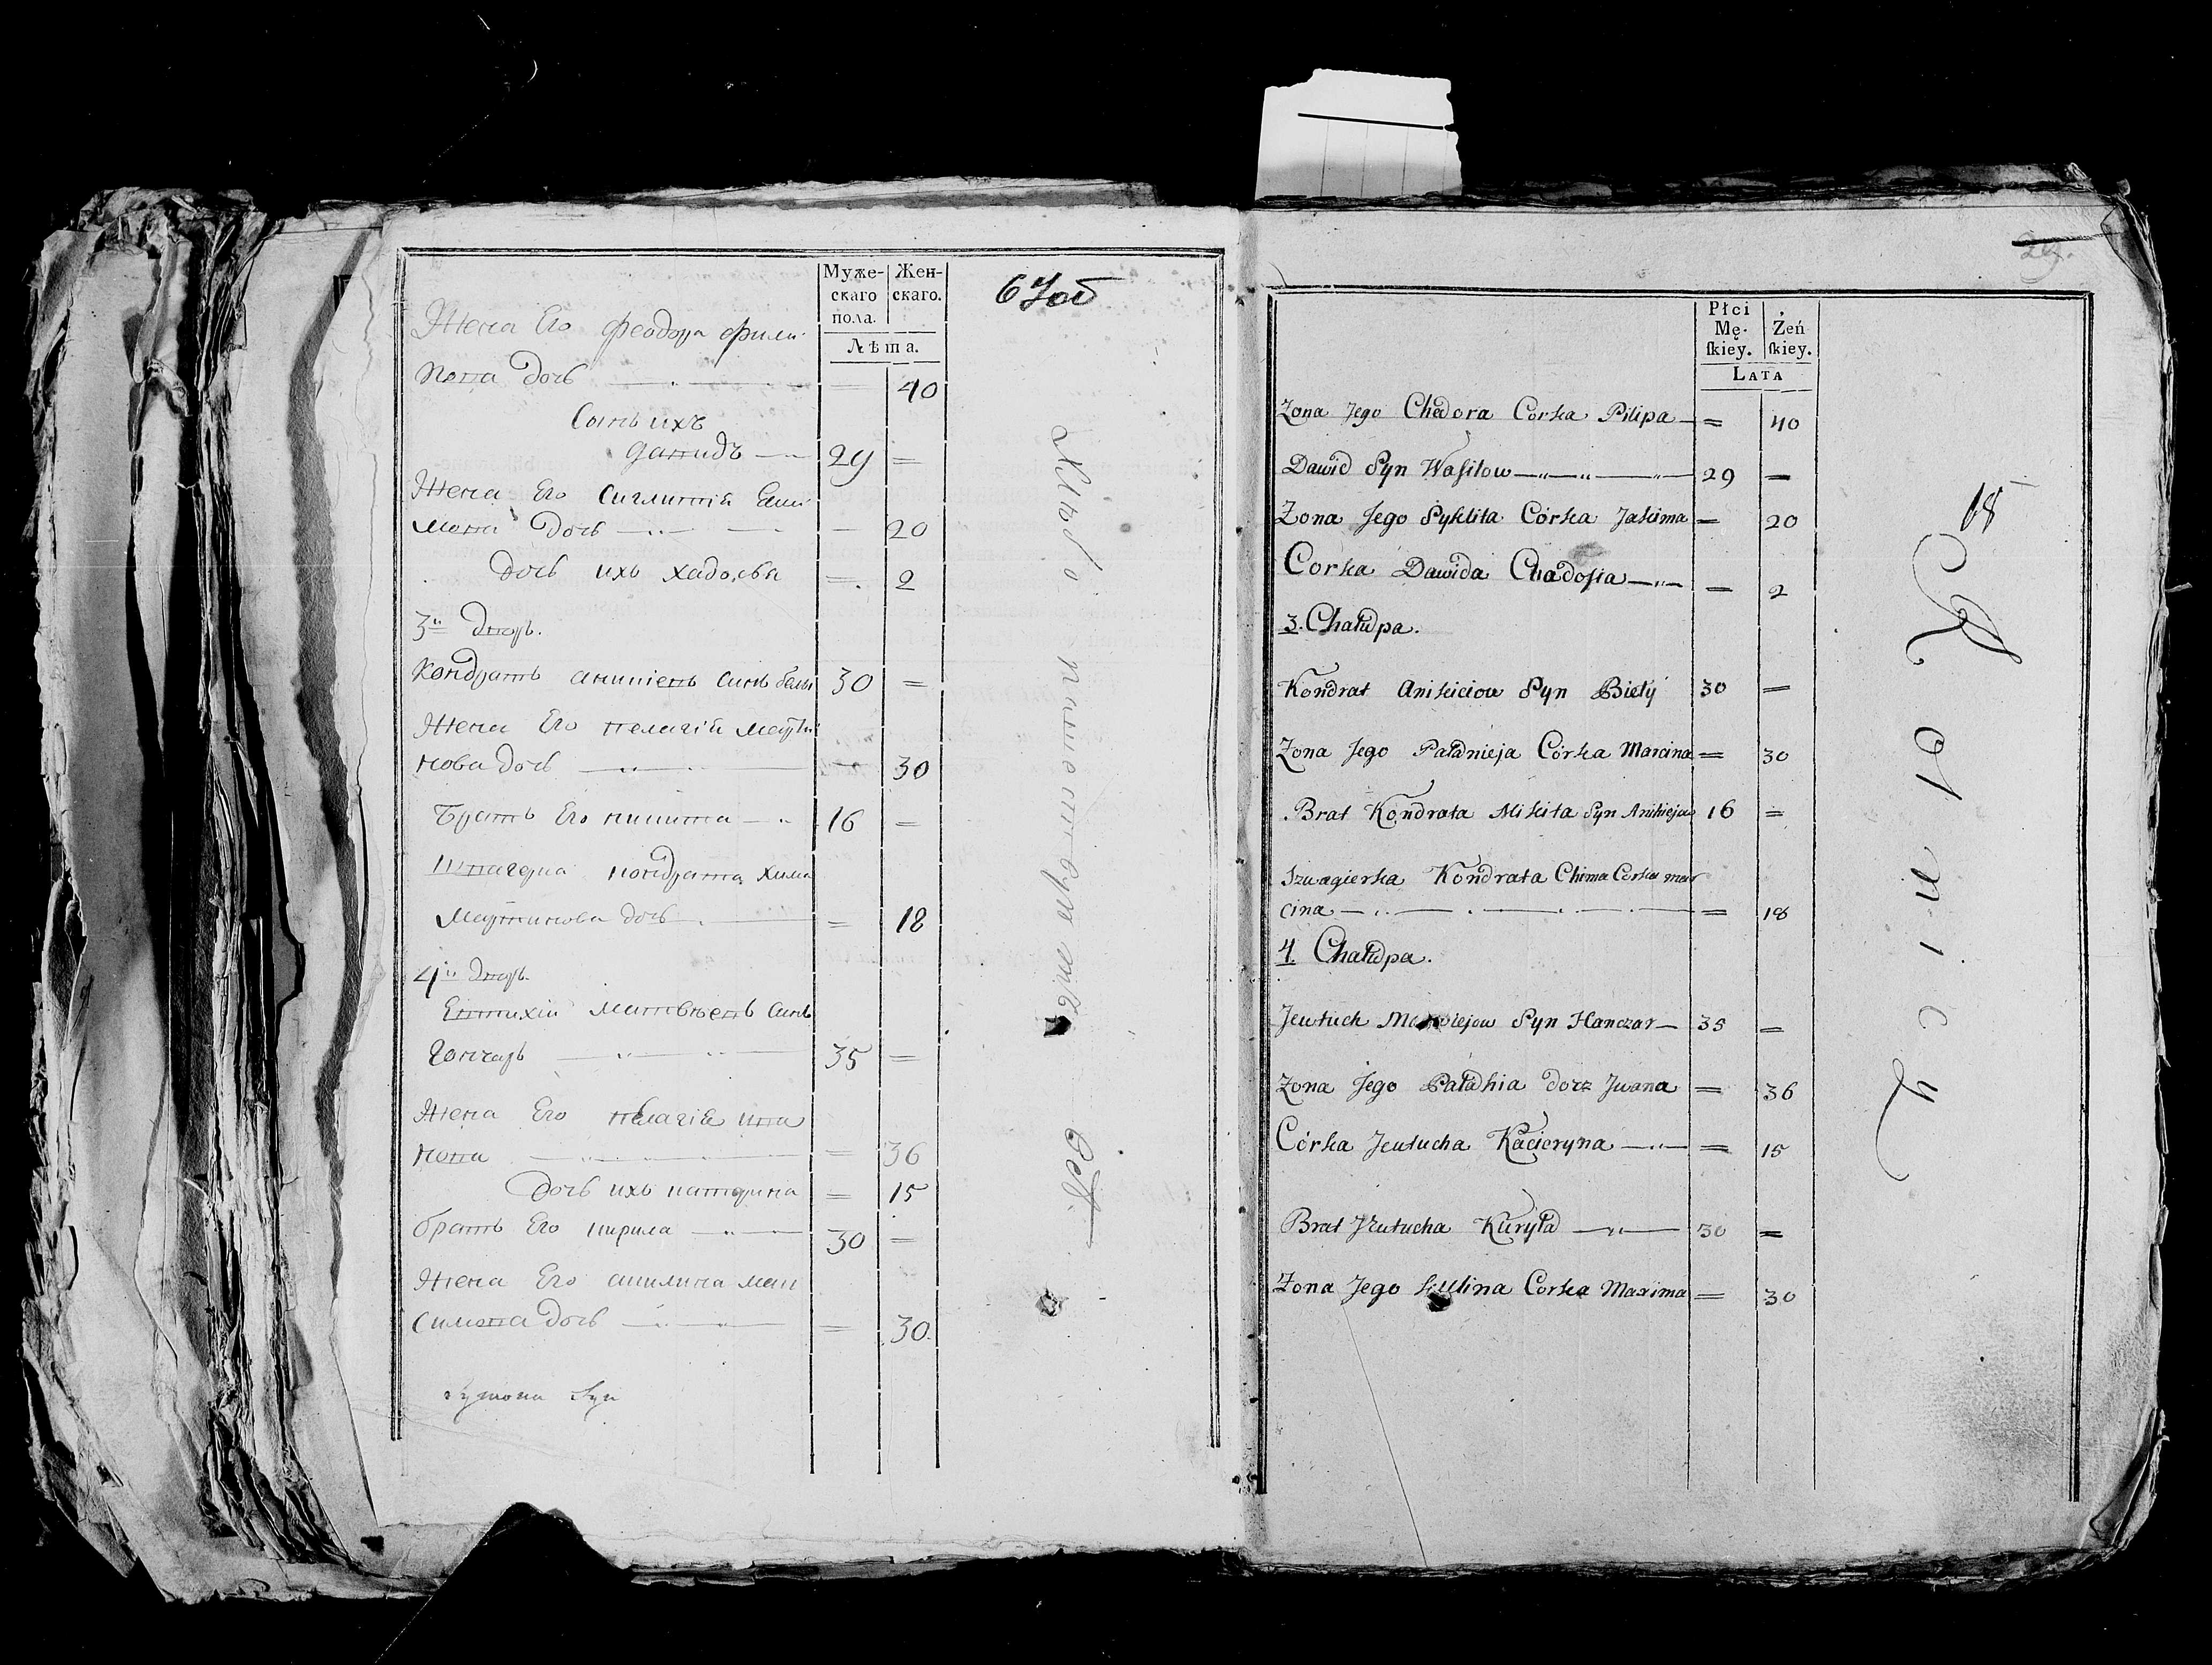 Муже-
скаго
пола.
Жен-
скаго.
Лѣта.
67об
Жена Его Феодора Фили
пова дочь — — 40
Сынъ ихъ
Давидъ — 29 =
Жена Его Сиглитія Еки
мова дочь — — 20
дочь ихъ хадосья = 2
3й дворъ.
Кондратъ аникіевъ сынъ белы 30 =
Жена Его пелагія марти
нова дочь — — 30
Братъ Его никита — 16 =
Швагерка кондрата хима
Мартинова дочь — = 18
4й дворъ.
Евтихій матвѣевъ сынъ
Гончаръ — 35 =
Жена Его пелагія ива
нова — = 36
Дочь ихъ катерина = 15
братъ Его кирила — 30 =
Жена Его акилина мак
симова дочь — = 30.
Symona Syn
29.
Płci
Mę-
skiey.
Żeń
skiey.
LATA
Zona Jego Chadora Corka Pilipa — = 40
Dawid Syn Wasilow — 29 =
Zona Jego Syklita Córka Jakima = 20
Corka Dawida Chadosia — = 2
3. Chałupa.
Kondrat Anikiciow Syn Biełÿ 30 =
Zona Jego Pałanieja Córka Marcina = 30
Brat Kondrata Mikita Syn Anikiejow 16 =
Szwagierka Kondrata Chima Corka mar
cina — = 18
4. Chałupa.
Jeutuch Syn Hanczar — 35 =
Zona Jego Pałahia dorz Jwana = 36
Córka Jeutucha Kacieryna — = 15
Brat Jeutucha Kuryła — 30 =
Zona Jego Corka Maxima = 30
18
Kolnicy